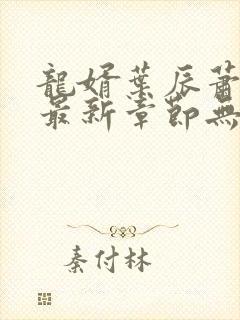 龍婿葉辰蕭
最新章節無
秦付林